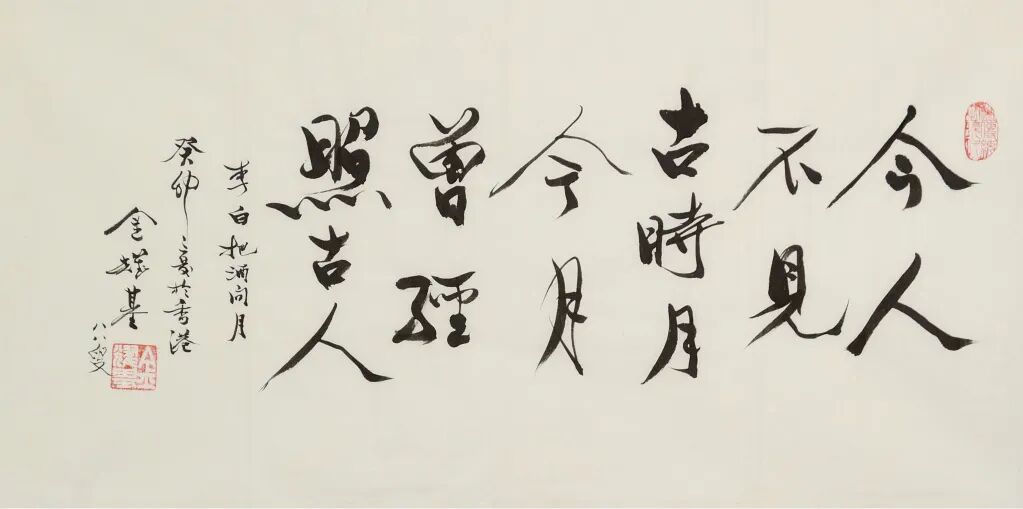 今人
不見
古時月
今月
曾經
照古人
李白把酒問月
癸卯之夏於香港
金耀基
八八叟